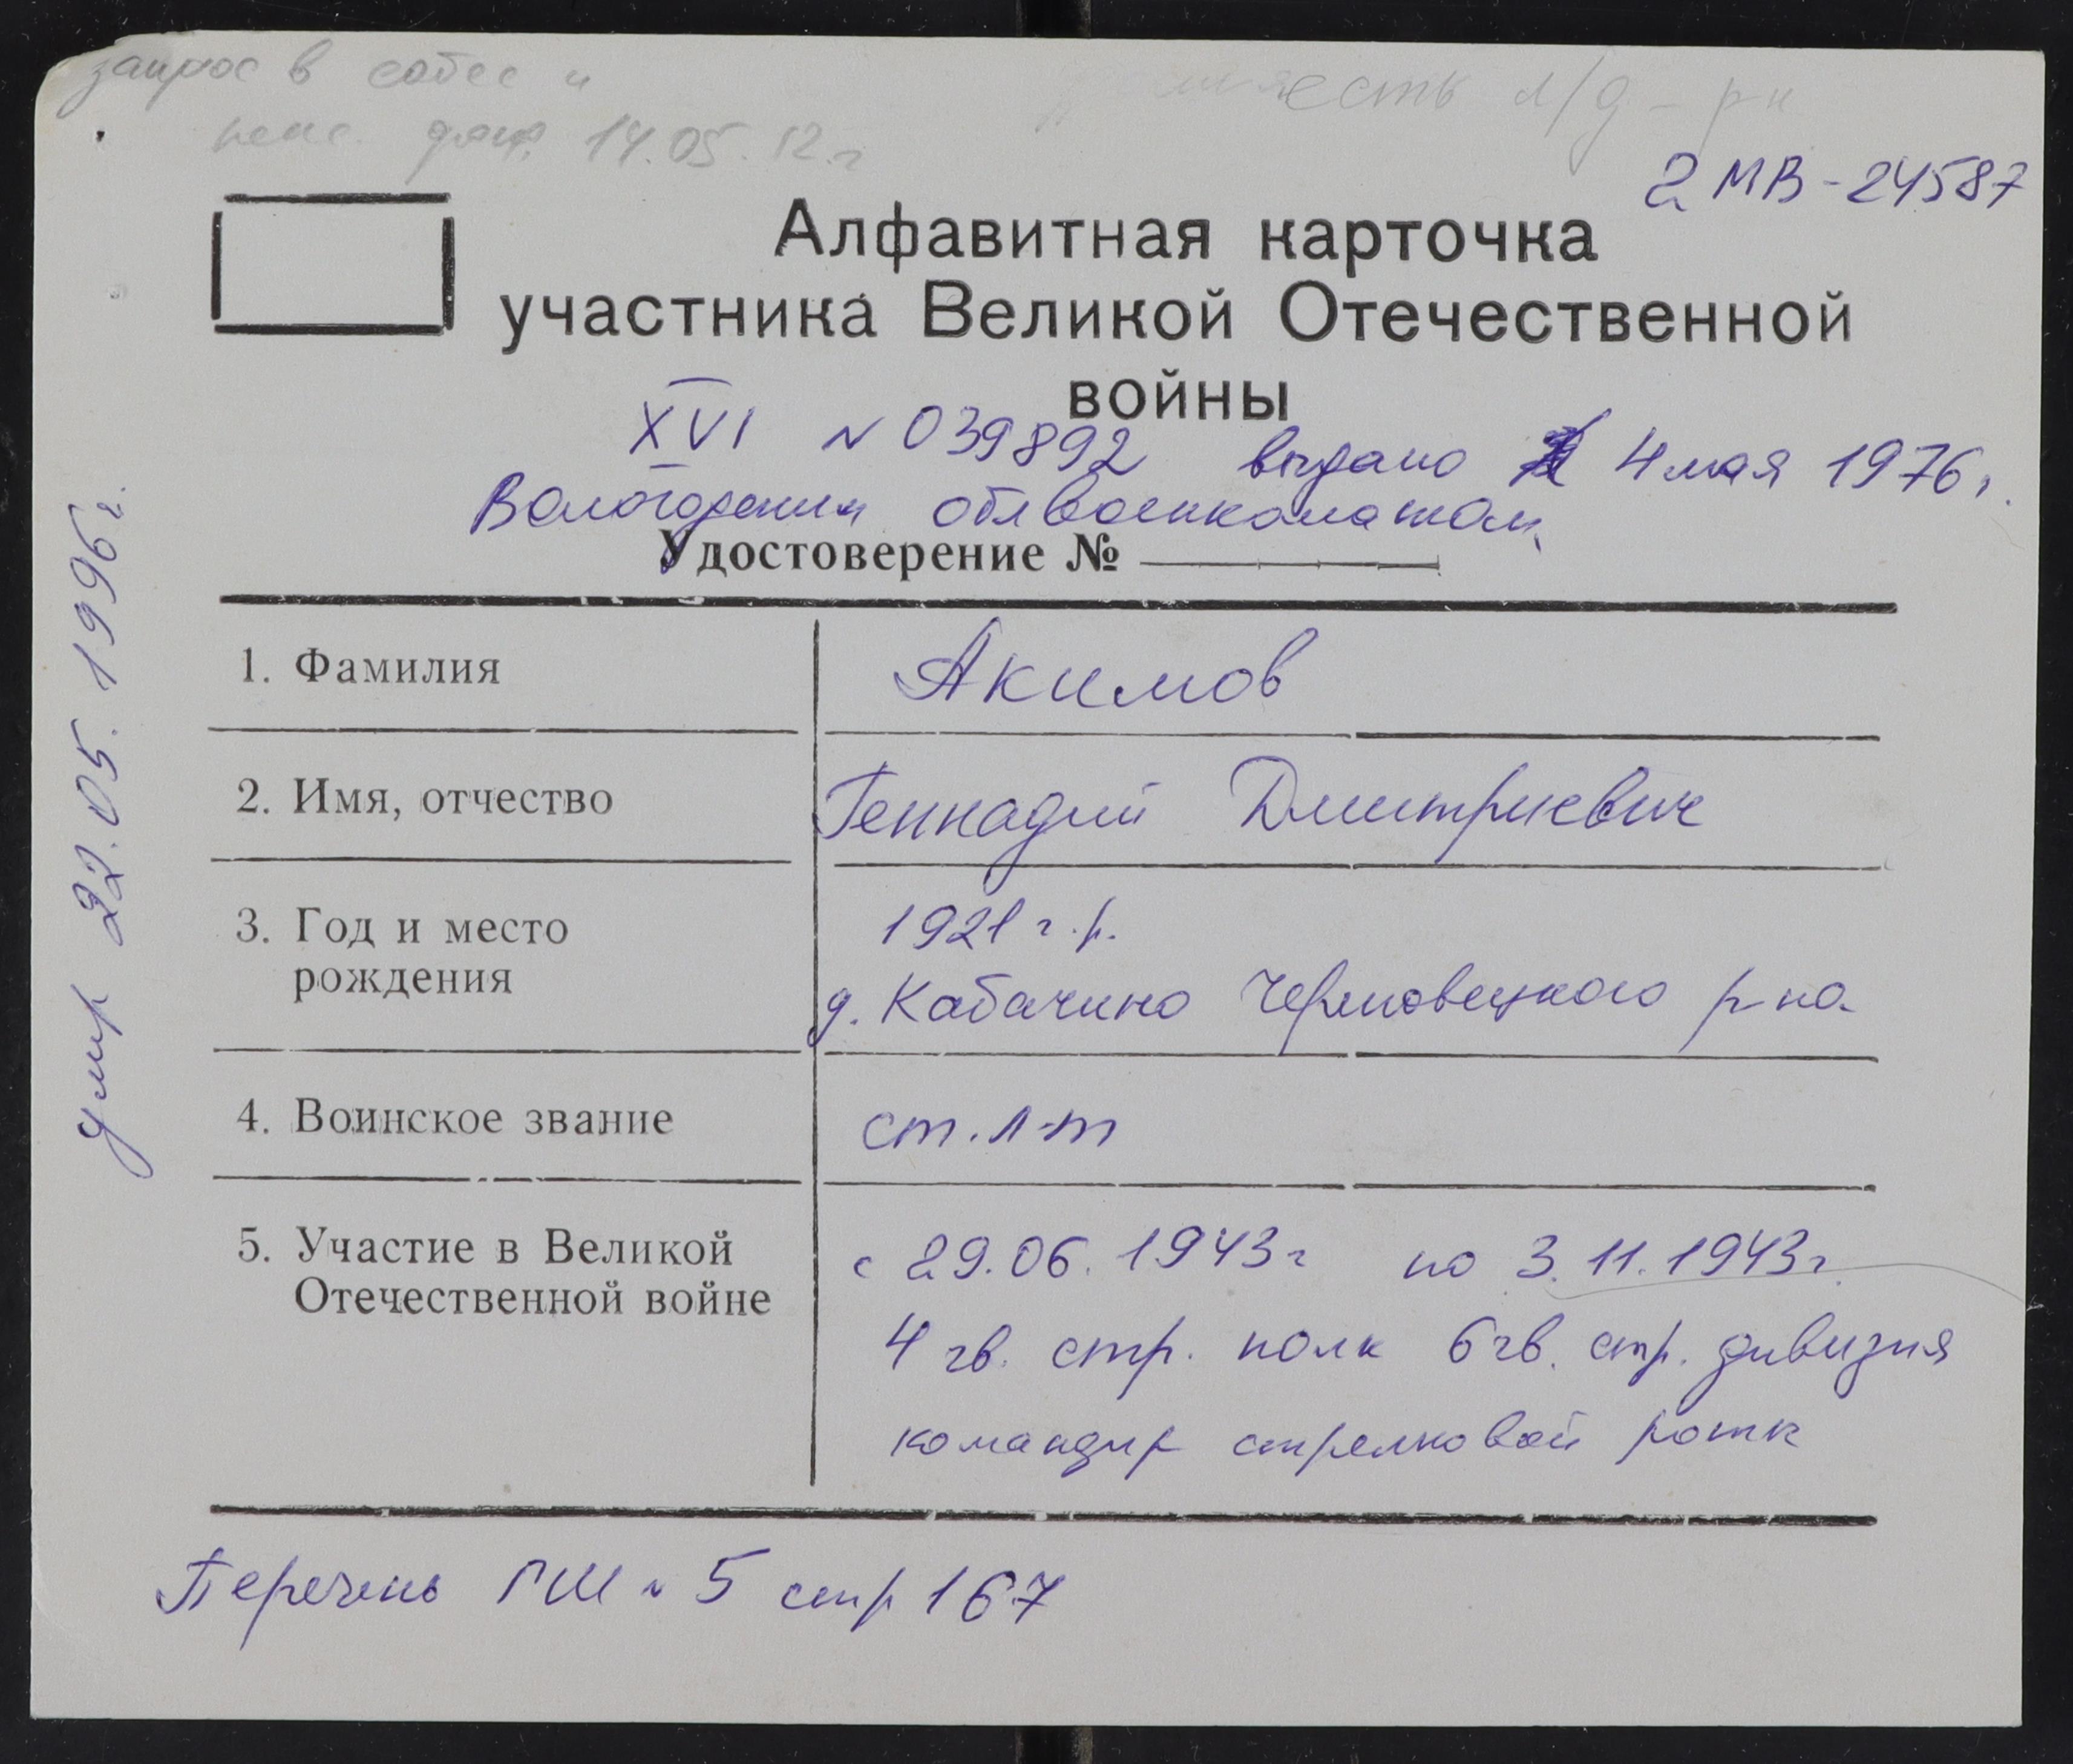 запрос в собес и
пенс. 14.05.12 г
есть л/д - рн
2 МВ - 24587
Алфавитная карточка
участника Великой Отечественной
войны
XVI № 039892 выдано 4 мая 1976 г.
Вологодским облвоенкоматом
Удостоверение №
умер 22.05.1996 г.
1. Фамилия Акимов
2. Имя, отчество Геннадий Дмитриевич
3. Год и место 1921 г.р.
рождения д. Кабачино Череповецкого р-на
4. Воинское звание ст. л-т
5. Участие в Великой с 29.06.1943 г по 3.11.1943 г.
Отечественной войне 4 гв. стр. полк 6 гв. стр. дивизия
командир стрелковой роты
Перечень ГШ № 5 стр 167